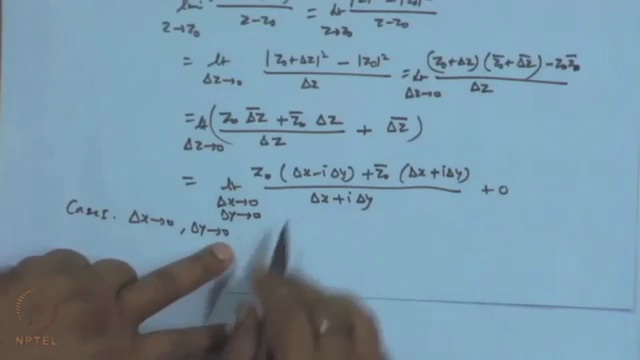 lim z→z₀ z-z₀ = lt z→z₀ |z|²-|z₀|² z-z₀
= lt Δz→0 |z₀+Δz|² - |z₀|² / Δz = lt Δz→0 (z₀+Δz)(z̄₀+Δ̅z̅)-z₀z̄₀ / Δz
= lt Δz→0 ( z₀ Δ̅z̅ + z̄₀ Δz / Δz + Δ̅z̅ )
= lt Δx→0 Δy→0 z₀ (Δx-iΔy) + z̄₀ (Δx+iΔy) / Δx+iΔy + 0
Case I. Δx→0, Δy→0
NPTEL